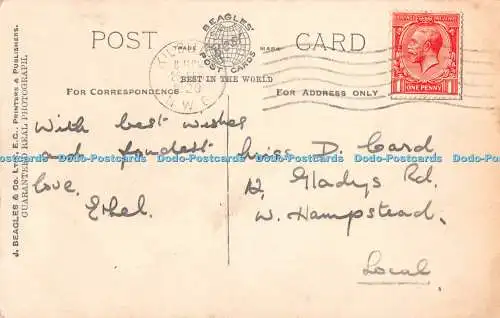 POST
CARD
BEAGLES'
POST CARDS
TRADE
MARK
BEST IN THE WORLD
FOR CORRESPONDENCE
FOR ADDRESS ONLY
POSTAGE
REVENUE
ONE PENNY
J. BEAGLES & CO. LTD., E.C., PRINTERS & PUBLISHERS.
GUARANTEED REAL PHOTOGRAPH.
With best wishes
and fondest
love.
Ethel.
Miss D. Card
12, Gladys Rd.
W. Hampstead.
Local
N.W.6
Dodo-Postcards Dodo-Postcards Dodo-Postcards Dodo-Postcards Dodo-Postcards Dodo-Postcards